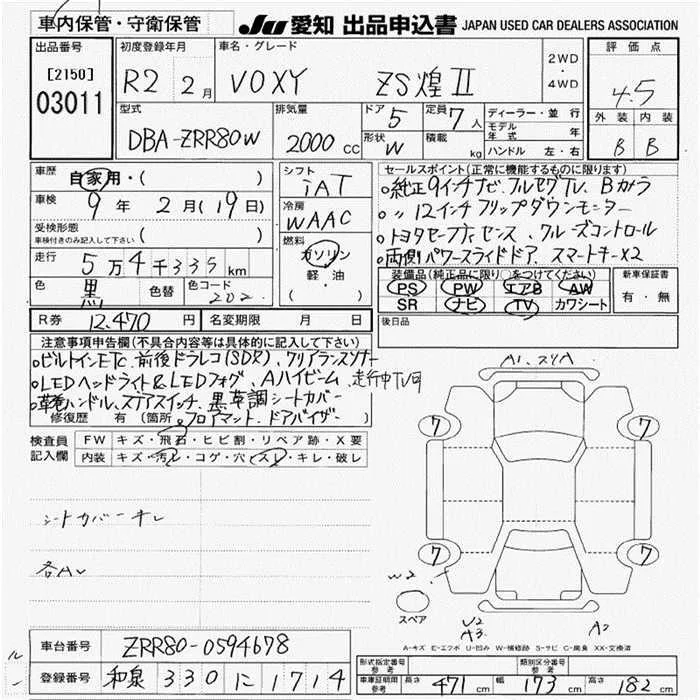 車内保管・守衛保管
JU 愛知 出品申込書 JAPAN USED CAR DEALERS ASSOCIATION
出品番号
[2150]
03011
初度登録年月
R2 2月
車名・グレード
VOXY ZS煌Ⅱ
2WD
・
4WD
評価点
4.5
外装 内装
B B
型式
DBA-ZRR80W
排気量
2000 cc
ドア 5
形状 W
定員 7人
積載 kg
ディーラー・並行
モデル年式 年
ハンドル 左・右
車歴
自家用・( )
車検
9年 2月(19日)
受検形態
車検付きのみ記入して下さい ( )
走行
5万4千335km
色
黒
色替
色コード
202
シフト
IAT
冷房
WAAC
燃料
ガソリン
軽・油
( )
セールスポイント(正常に機能するものに限ります)
○純正9インチナビ、フルセグTV、Bカメラ
○〃12インチフリップダウンモニター
○トヨタセーフティセンス、クルーズコントロール
○両側パワースライドドア、スマートキーX2
装備品(純正品に限り○をつけてください)
PS PW エアB AW
SR ナビ TV カワシート
新車保証書
有・無
R券 12,470円
名変期限 月 日
後日品
注意事項申告欄(不具合内容等は具体的に記入して下さい)
○ビルトインETC、前後ドラレコ(SDR)、クリアランスソナー
○LEDヘッドライト&LEDフォグ、Aハイビーム、走行中TV可
○革巻ハンドル、ステアスイッチ、黒革調シートカバー
修復歴 有 (箇所
○フロアマット、ドアバイザー
検査員
記入欄
FW キズ・飛石・ヒビ割・リペア跡・X要
内装 キズ・汚レ・コゲ・穴・スレ・キレ・破レ
シートカバーキレ
各AU
A1、スリA
7
7
7
7
W2
スペア
U2
A3
A2
A-キズ E-エクボ U-凹み W-補修跡 S-サビ C-腐食 XX-交換済
車台番号 ZRR80-0594678
登録番号 和泉 330 に 1714
形式指定番号
参考
類別区分番号
参考
車庫証明用
参考
長さ 471 cm 幅 173 cm 高さ 182 cm